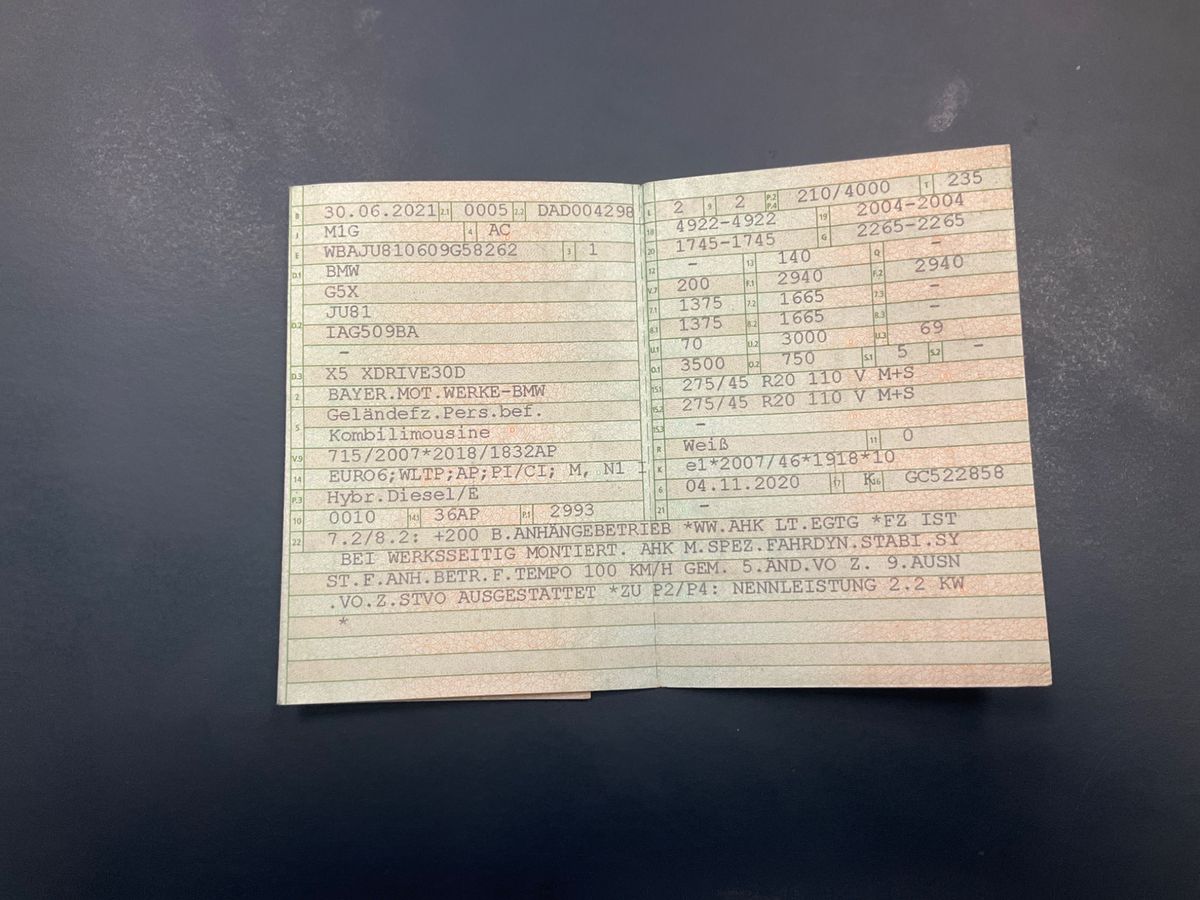 B 30.06.2021 2.1 0005 2.2 DAD004298
J M1G 4 AC
E WBAJU810609G58262 3 1
D.1 BMW
G5X
D.2 JU81
IAG509BA
–
D.3 X5 XDRIVE30D
2 BAYER.MOT.WERKE-BMW
5 Geländefz.Pers.bef.
Kombilimousine
V.9 715/2007*2018/1832AP
14 EURO6;WLTP;AP;PI/CI; M, N1 I
P.3 Hybr.Diesel/E
10 0010 14.1 36AP P.1 2993
L 2 9 2 P.2 P.4 210/4000 T 235
18 4922-4922 19 2004-2004
20 1745-1745 G 2265-2265
12 – 13 140 Q –
V.7 200 F.1 2940 F.2 2940
7.1 1375 7.2 1665 7.3 –
8.1 1375 8.2 1665 8.3 –
U.1 70 U.2 3000 U.3 69
O.1 3500 O.2 750 S.1 5 S.2 –
15.1 275/45 R20 110 V M+S
15.2 275/45 R20 110 V M+S
15.3 –
R Weiß 11 0
K e1*2007/46*1918*10
6 04.11.2020 17 K 16 GC522858
21 –
22 7.2/8.2: +200 B.ANHÄNGEBETRIEB *WW.AHK LT.EGTG *FZ IST
BEI WERKSSEITIG MONTIERT. AHK M.SPEZ.FAHRDYN.STABI.SY
ST.F.ANH.BETR.F.TEMPO 100 KM/H GEM. 5.ÄND.VO Z. 9.AUSN
.VO.Z.STVO AUSGESTATTET *ZU P2/P4: NENNLEISTUNG 2.2 KW
*